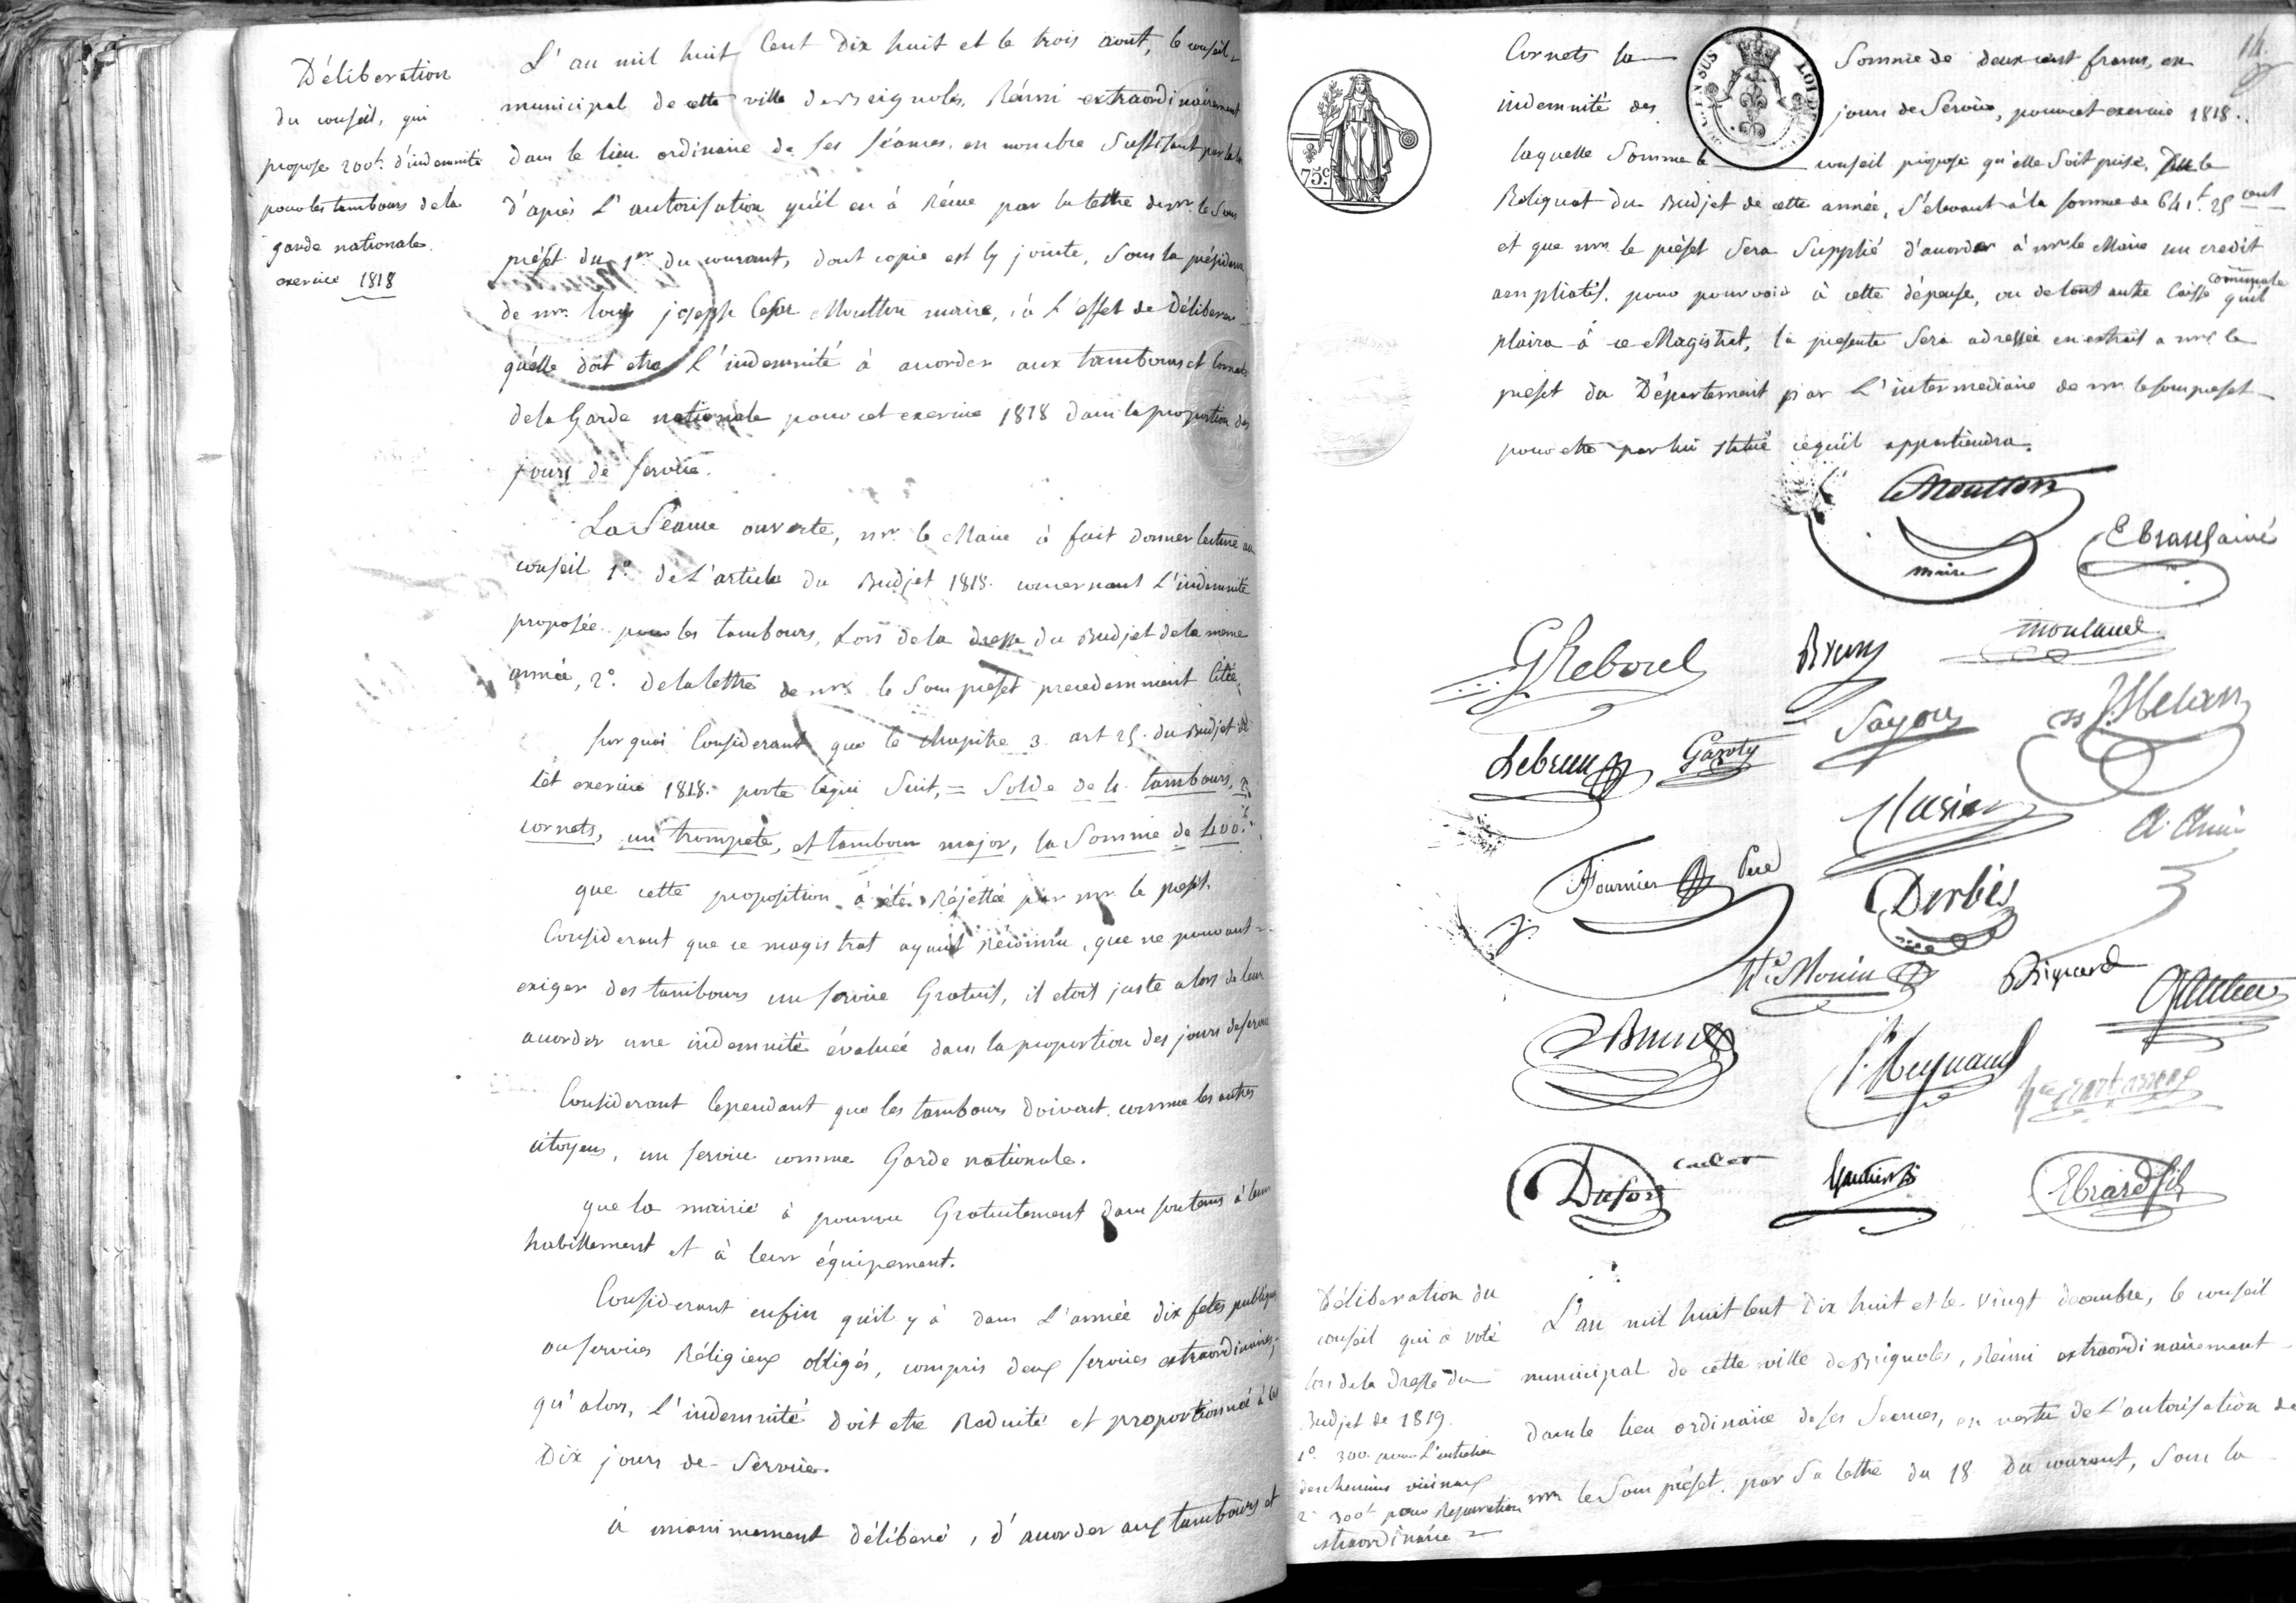 Déliberation
du conseil, qui
propose 200f. d'indemnité
pour les tambours de la
garde nationale.
exercice 1818
L'an mil huit Cent Dix huit et le trois aout, le conseil
municipal de cette ville de Brignoles, Réuni extraordinairement
dans le lieu ordinaire de ses séances, en nombre suffisant
d'après L'autorisation qu'il en à Réçue par la lettre de mr. le Sous
préfet du 1er du courant, dont copie est cy jointe, Sous la présidence
de mr. Louis joseph Cesar Moutton maire, à L'effet de Déliberer
quelle doit etre L'indemnité à accorder aux tambours et Cornets
de la Garde nationale pour cet exercice 1818 dans la proportion des
jours de service.
La Séance ouverte, mr. le Maire à fait donner lecture au
conseil 1o. de L'article du Budjet 1818. concernant L'indemnité
proposée pour les tambours, Lors de la dresse du Budjet de la meme
année, 2o. de la lettre de mr. le Sous préfet precedemment Citée.
sur quoi Considerant que le Chapitre 3. art 25. du Budjet de
Cet exercice 1818. porte ce qui Suit, = Solde de 4. tambours, 2
cornets, un trompete, et tambour major, la Somme de 400f.
que cette proposition à été Réjettée par mr. le prefet.
Considerant que ce magistrat ayant réconnu, que ne pouvant =
exiger des tambours un service Gratuit, il etoit juste alors de leur
accorder une indemnité évaluée dans la proportion des jours de service
Considerant Cependant que les tambours doivent, comme les autres
citoyens, un service comme Garde nationale.
que la mairie à pourvu Gratuitement dans tous tems à leur
habillement et à leur équipement.
Considerant enfin qu'il y à dans L'année dix fetes publiques
ou services Réligieux obligés, compris deux services extraordinaires,
qu'alors, L'indemnité doit etre Réduite et proportionnée à ces
Dix jours de Service.
à unanimement délibéré, d'accorder aux tambours et
14
Cornets la Somme de deux cent francs, en
indemnité des jours de Service, pour cet exercice 1818.
laquelle Somme le conseil propose qu'elle Soit prise, Sur le
Reliquat du Budjet de cette année, S'elevant à la somme de 641f. 25 cent
et que mr. le préfet Sera Supplié d'accorder à mr. le Maire un credit
ampliatif, pour pourvoir à cette dépense, ou de tout autre Caisse communale qu'il
plaira à ce Magistrat, la presente Sera adressée en extrait a mr. le
prefet du Département par L'intermediaire de mr. le sous prefet
pour etre par lui statué ce qu'il appartiendra.
75c
LOI DE
Le Moutton
maire
GReboul
Brun
Lebrun
Garoty
Fournier
Derbès
Brun
Reynaud
Dufort
Gautier
Ebrard fils
Déliberation du
conseil qui à voté
lors de la Dresse du
Budjet de 1819.
1o 300. pour L'entretien
des chemins vicinaux
2o 300f pour Reparation
extraordinaire =
L'an mil huit Cent Dix huit et le vingt decembre, le conseil
municipal de cette ville de Brignoles, Réuni extraordinairement
dans le lieu ordinaire de ses Seances, en vertu de L'autorisation de
mr. le Sous préfet, par Sa lettre du 18 Du courant, Sous la